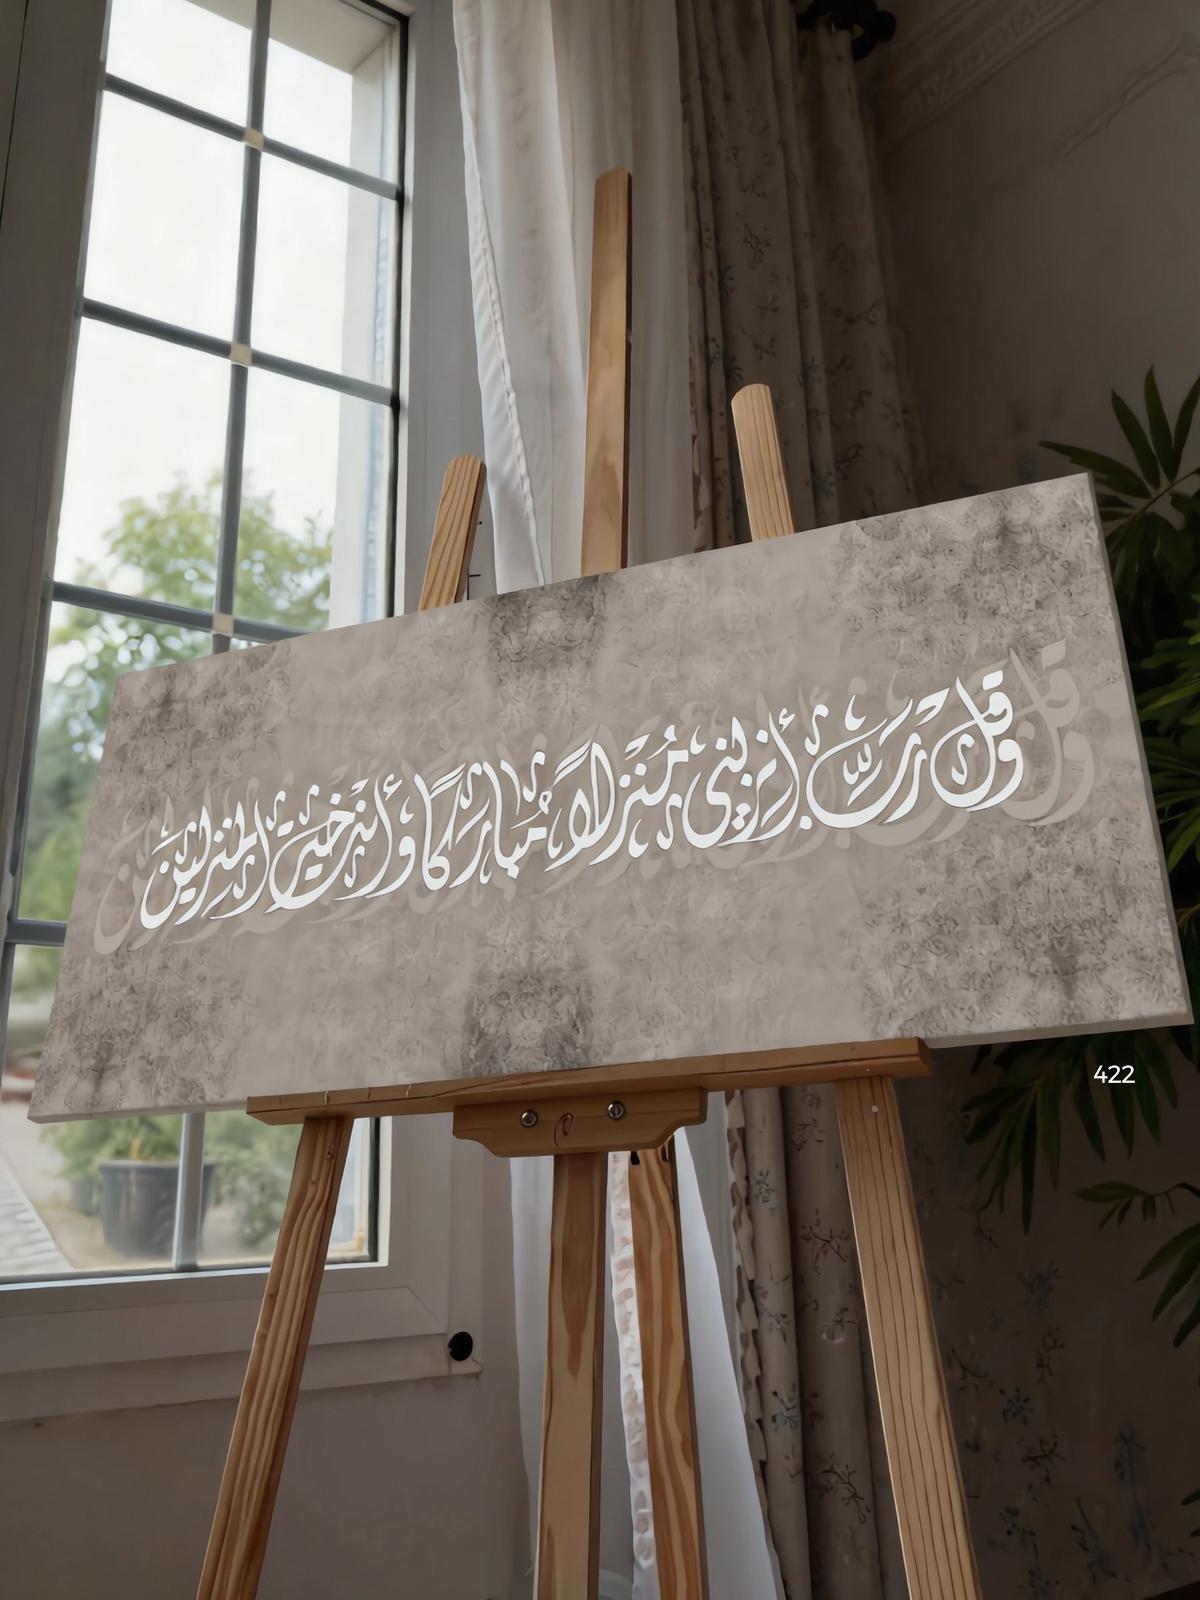 وقل رب أنزلني منزلاً مباركًا وأنت خير المنزلين
422